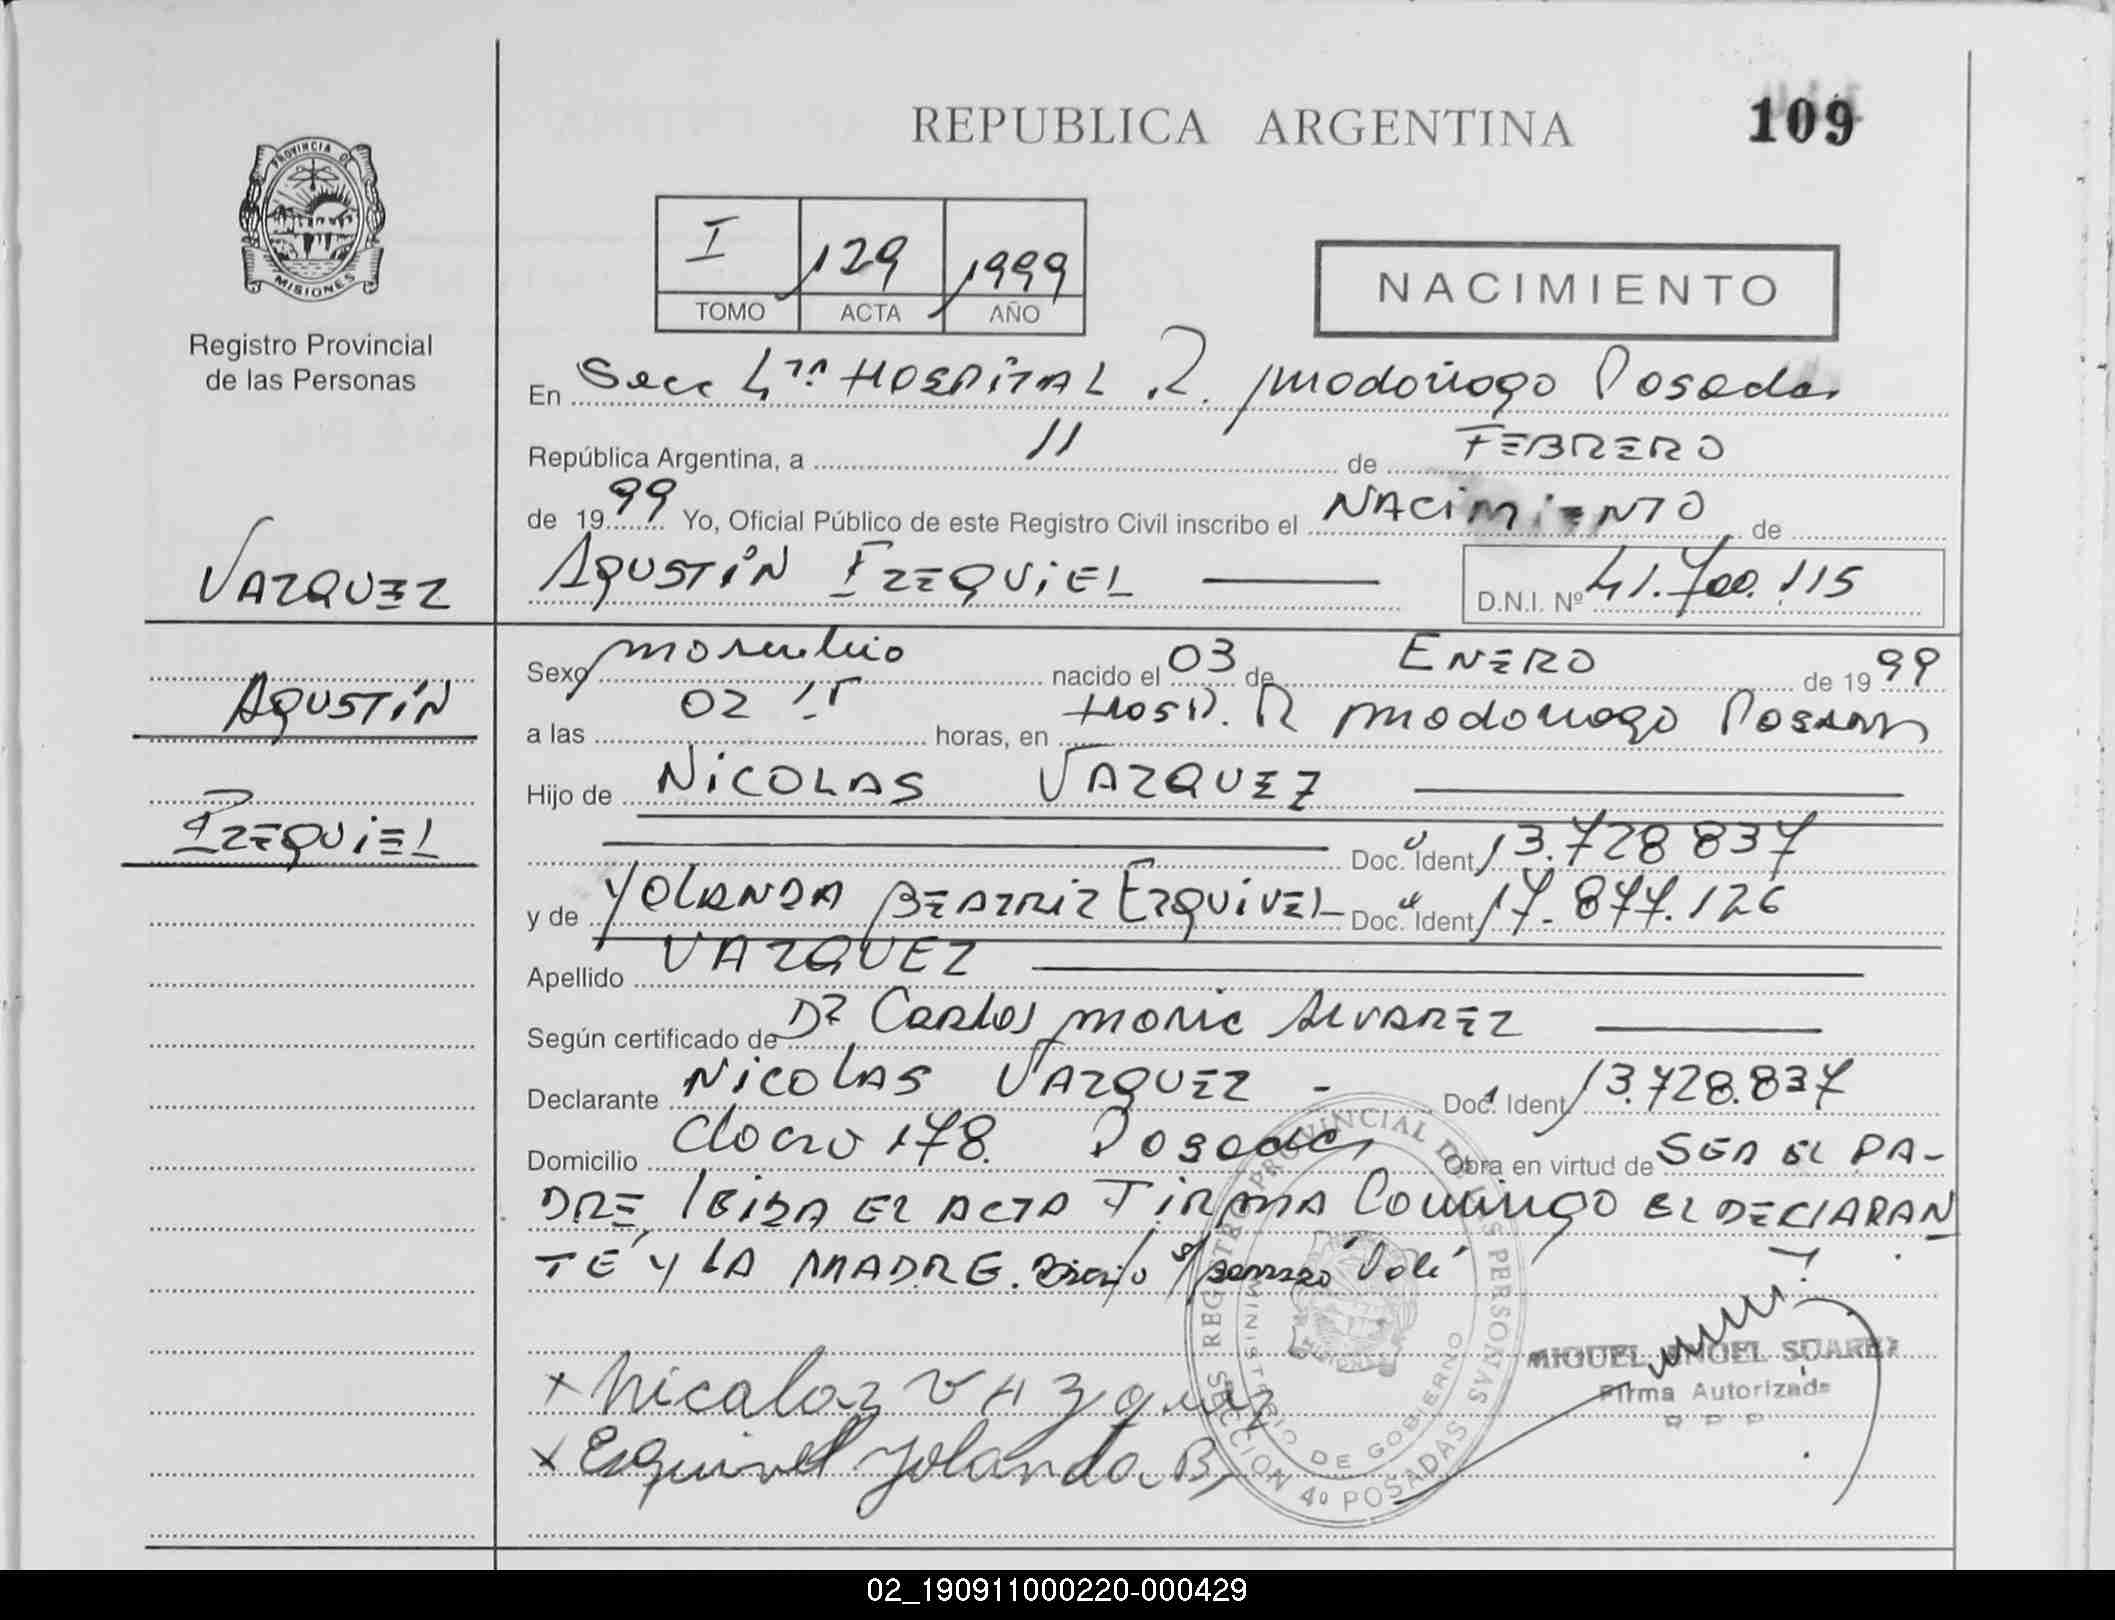 REPUBLICA ARGENTINA
109
PROVINCIA DE
MISIONES
Registro Provincial
de las Personas
I 129 1999
TOMO ACTA AÑO
NACIMIENTO
En Secc 4ta HOSPITAL R. Madariaga Posadas
República Argentina, a 11 de FEBRERO
de 1999 Yo, Oficial Público de este Registro Civil inscribo el NACIMIENTO de
VAZQUEZ
AGUSTIN EZEQUIEL
D.N.I. Nº 41.700.115
Sexo masculino nacido el 03 de ENERO de 1999
AGUSTIN
a las 02 15 horas, en HOSP. R Madariaga POSADAS
Hijo de NICOLAS VAZQUEZ
EZEQUIEL
Doc. Ident 13.728 837
y de YOLANDA BEATRIZ EZQUIVEL Doc. Ident 17.877.126
Apellido VAZQUEZ
Según certificado de Dr Carlos Mario ALVAREZ
Declarante NICOLAS VAZQUEZ - Doc. Ident 13.728.837
Domicilio 178. Posadas Obra en virtud de SER EL PA-
DRE, LEIDA EL ACTA FIRMA Conmigo EL DECLARAN
TE Y LA MADRE.
x Nicolaz VAzquez
x Esquivel Yolanda B,
REGISTRO PROVINCIAL DE LAS PERSONAS
MINISTERIO DE GOBIERNO
SECCION 4º POSADAS
MIGUEL ANGEL SUAREZ
Firma Autorizada
R P P
02_190911000220-000429